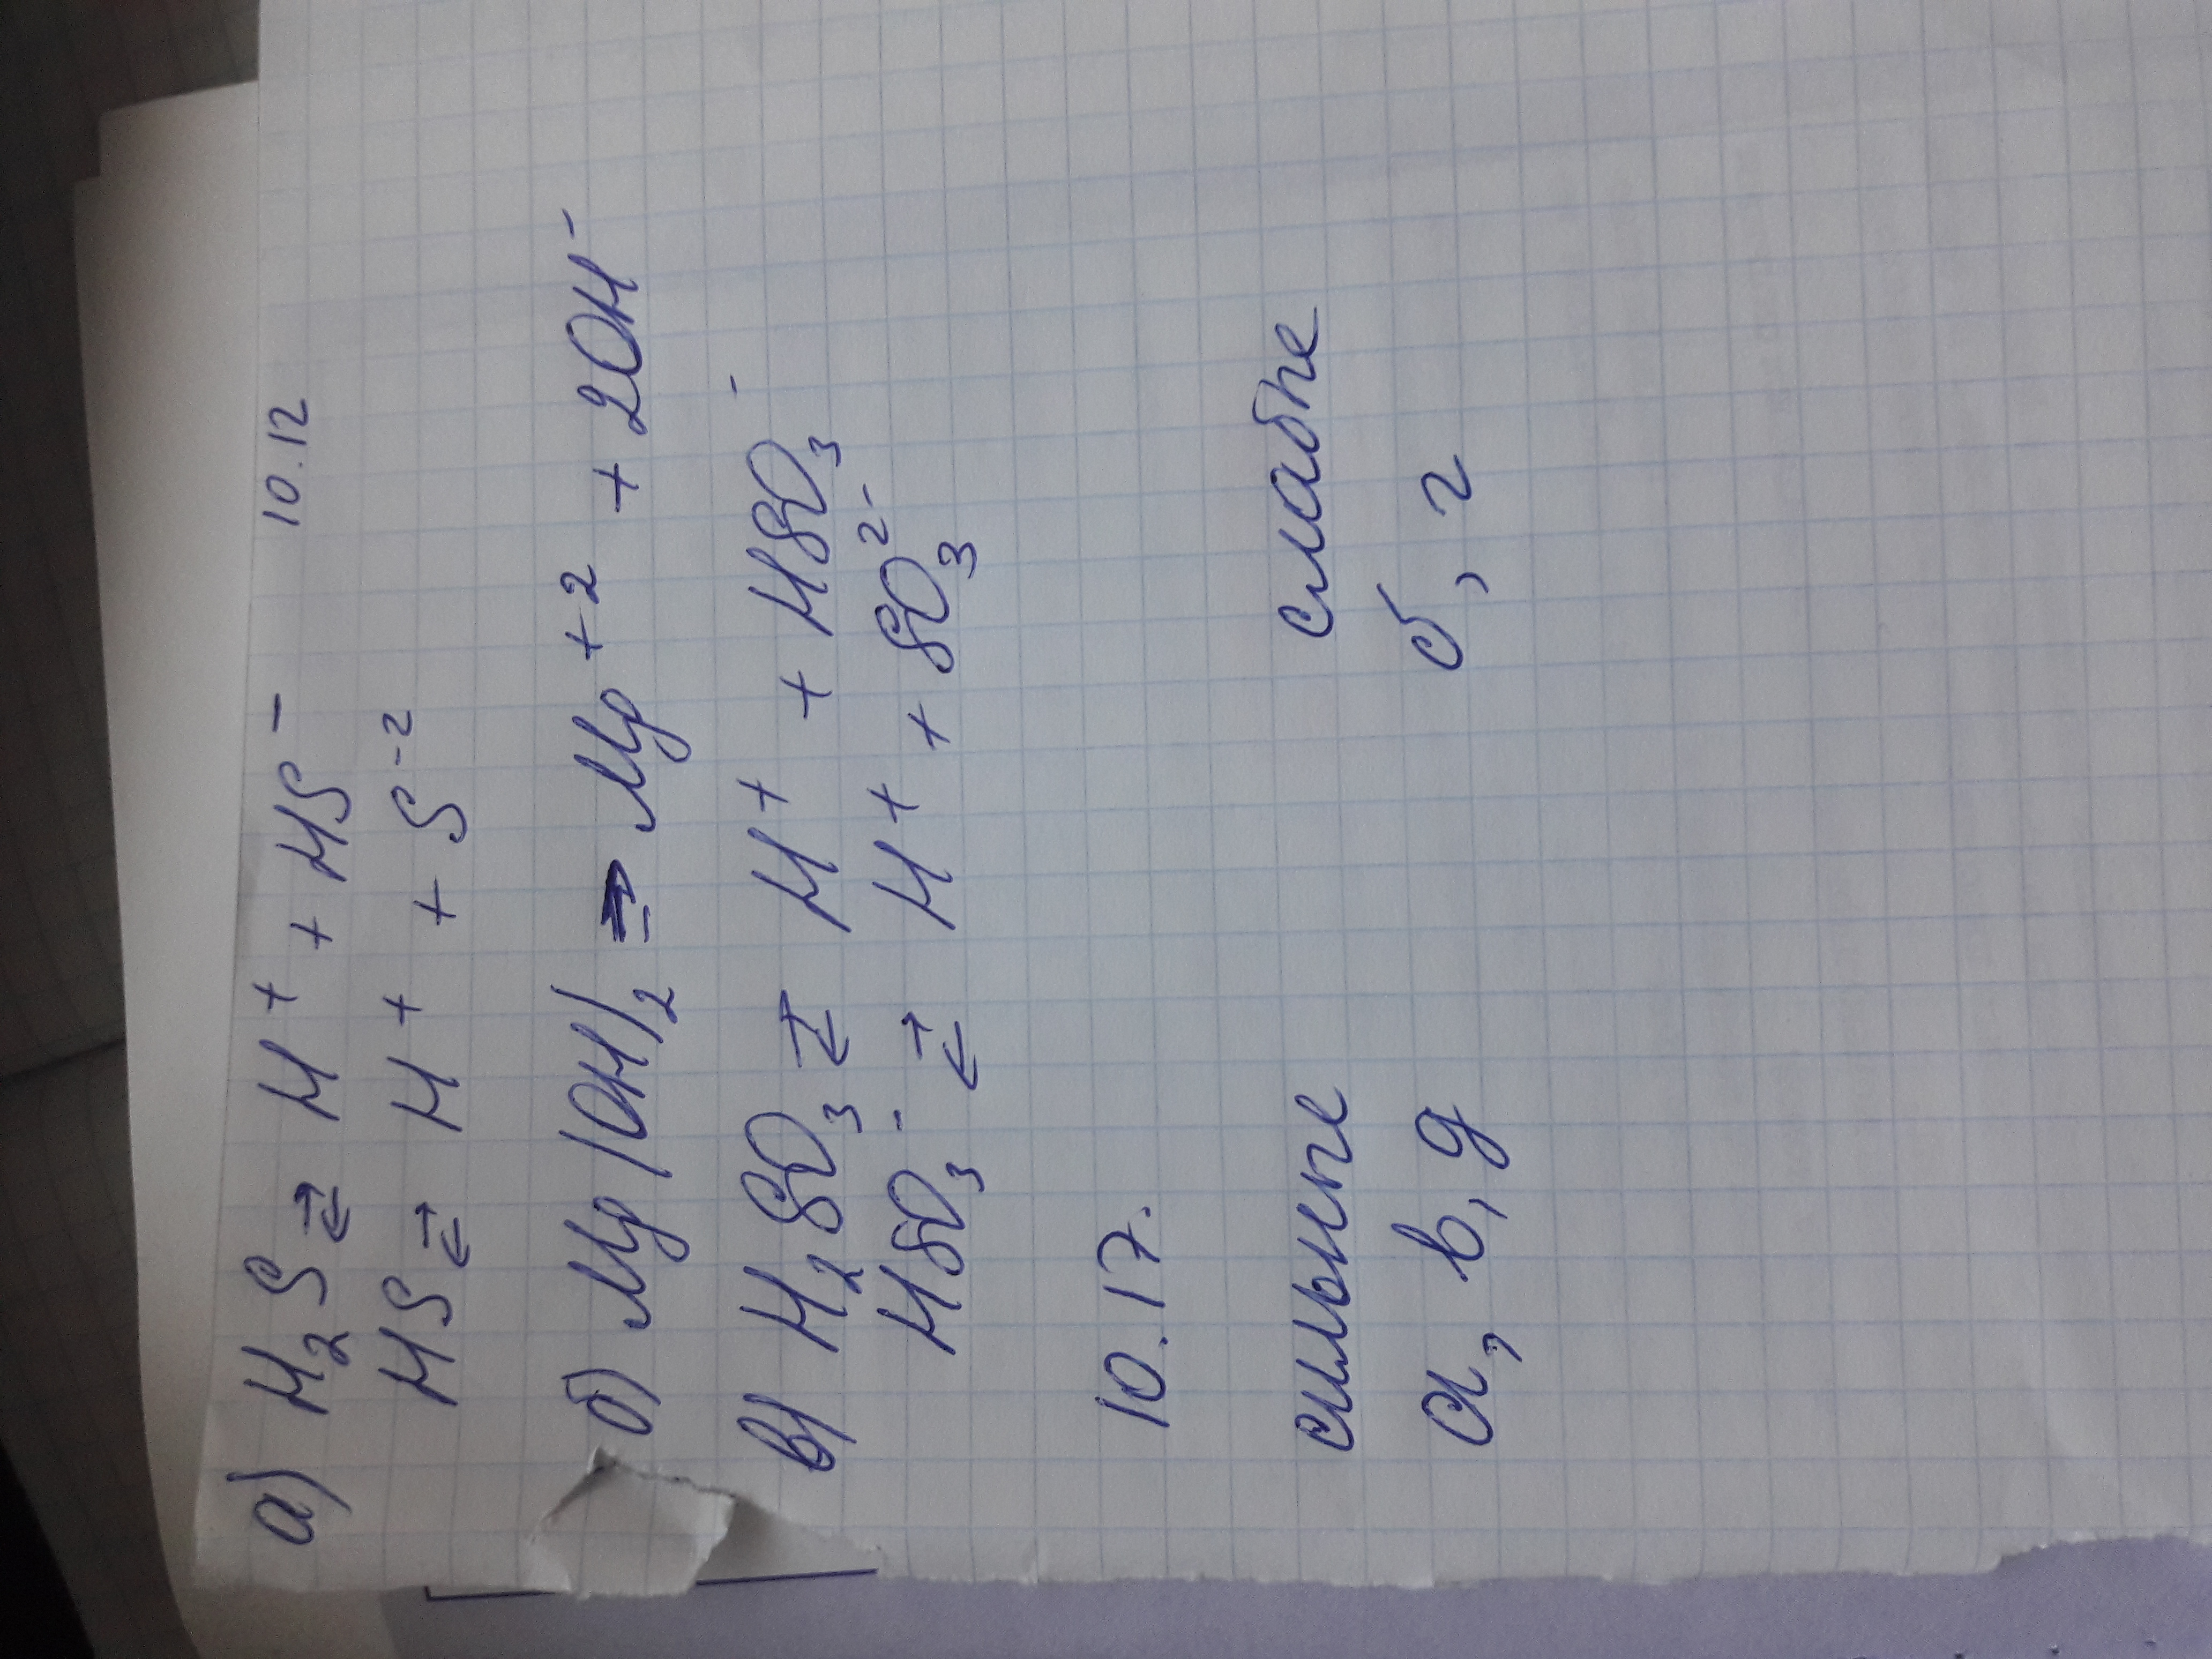 10.12
а) H₂S ⇄ H⁺ + HS⁻
HS ⇄ H⁺ + S⁻²
б) Mg(OH)₂ = Mg⁺² + 2OH⁻
в) H₂SO₃ ⇄ H⁺ + HSO₃⁻
HSO₃⁻ ⇄ H⁺ + SO₃²⁻
10.17.
сильные слабые
а, в, д б, г